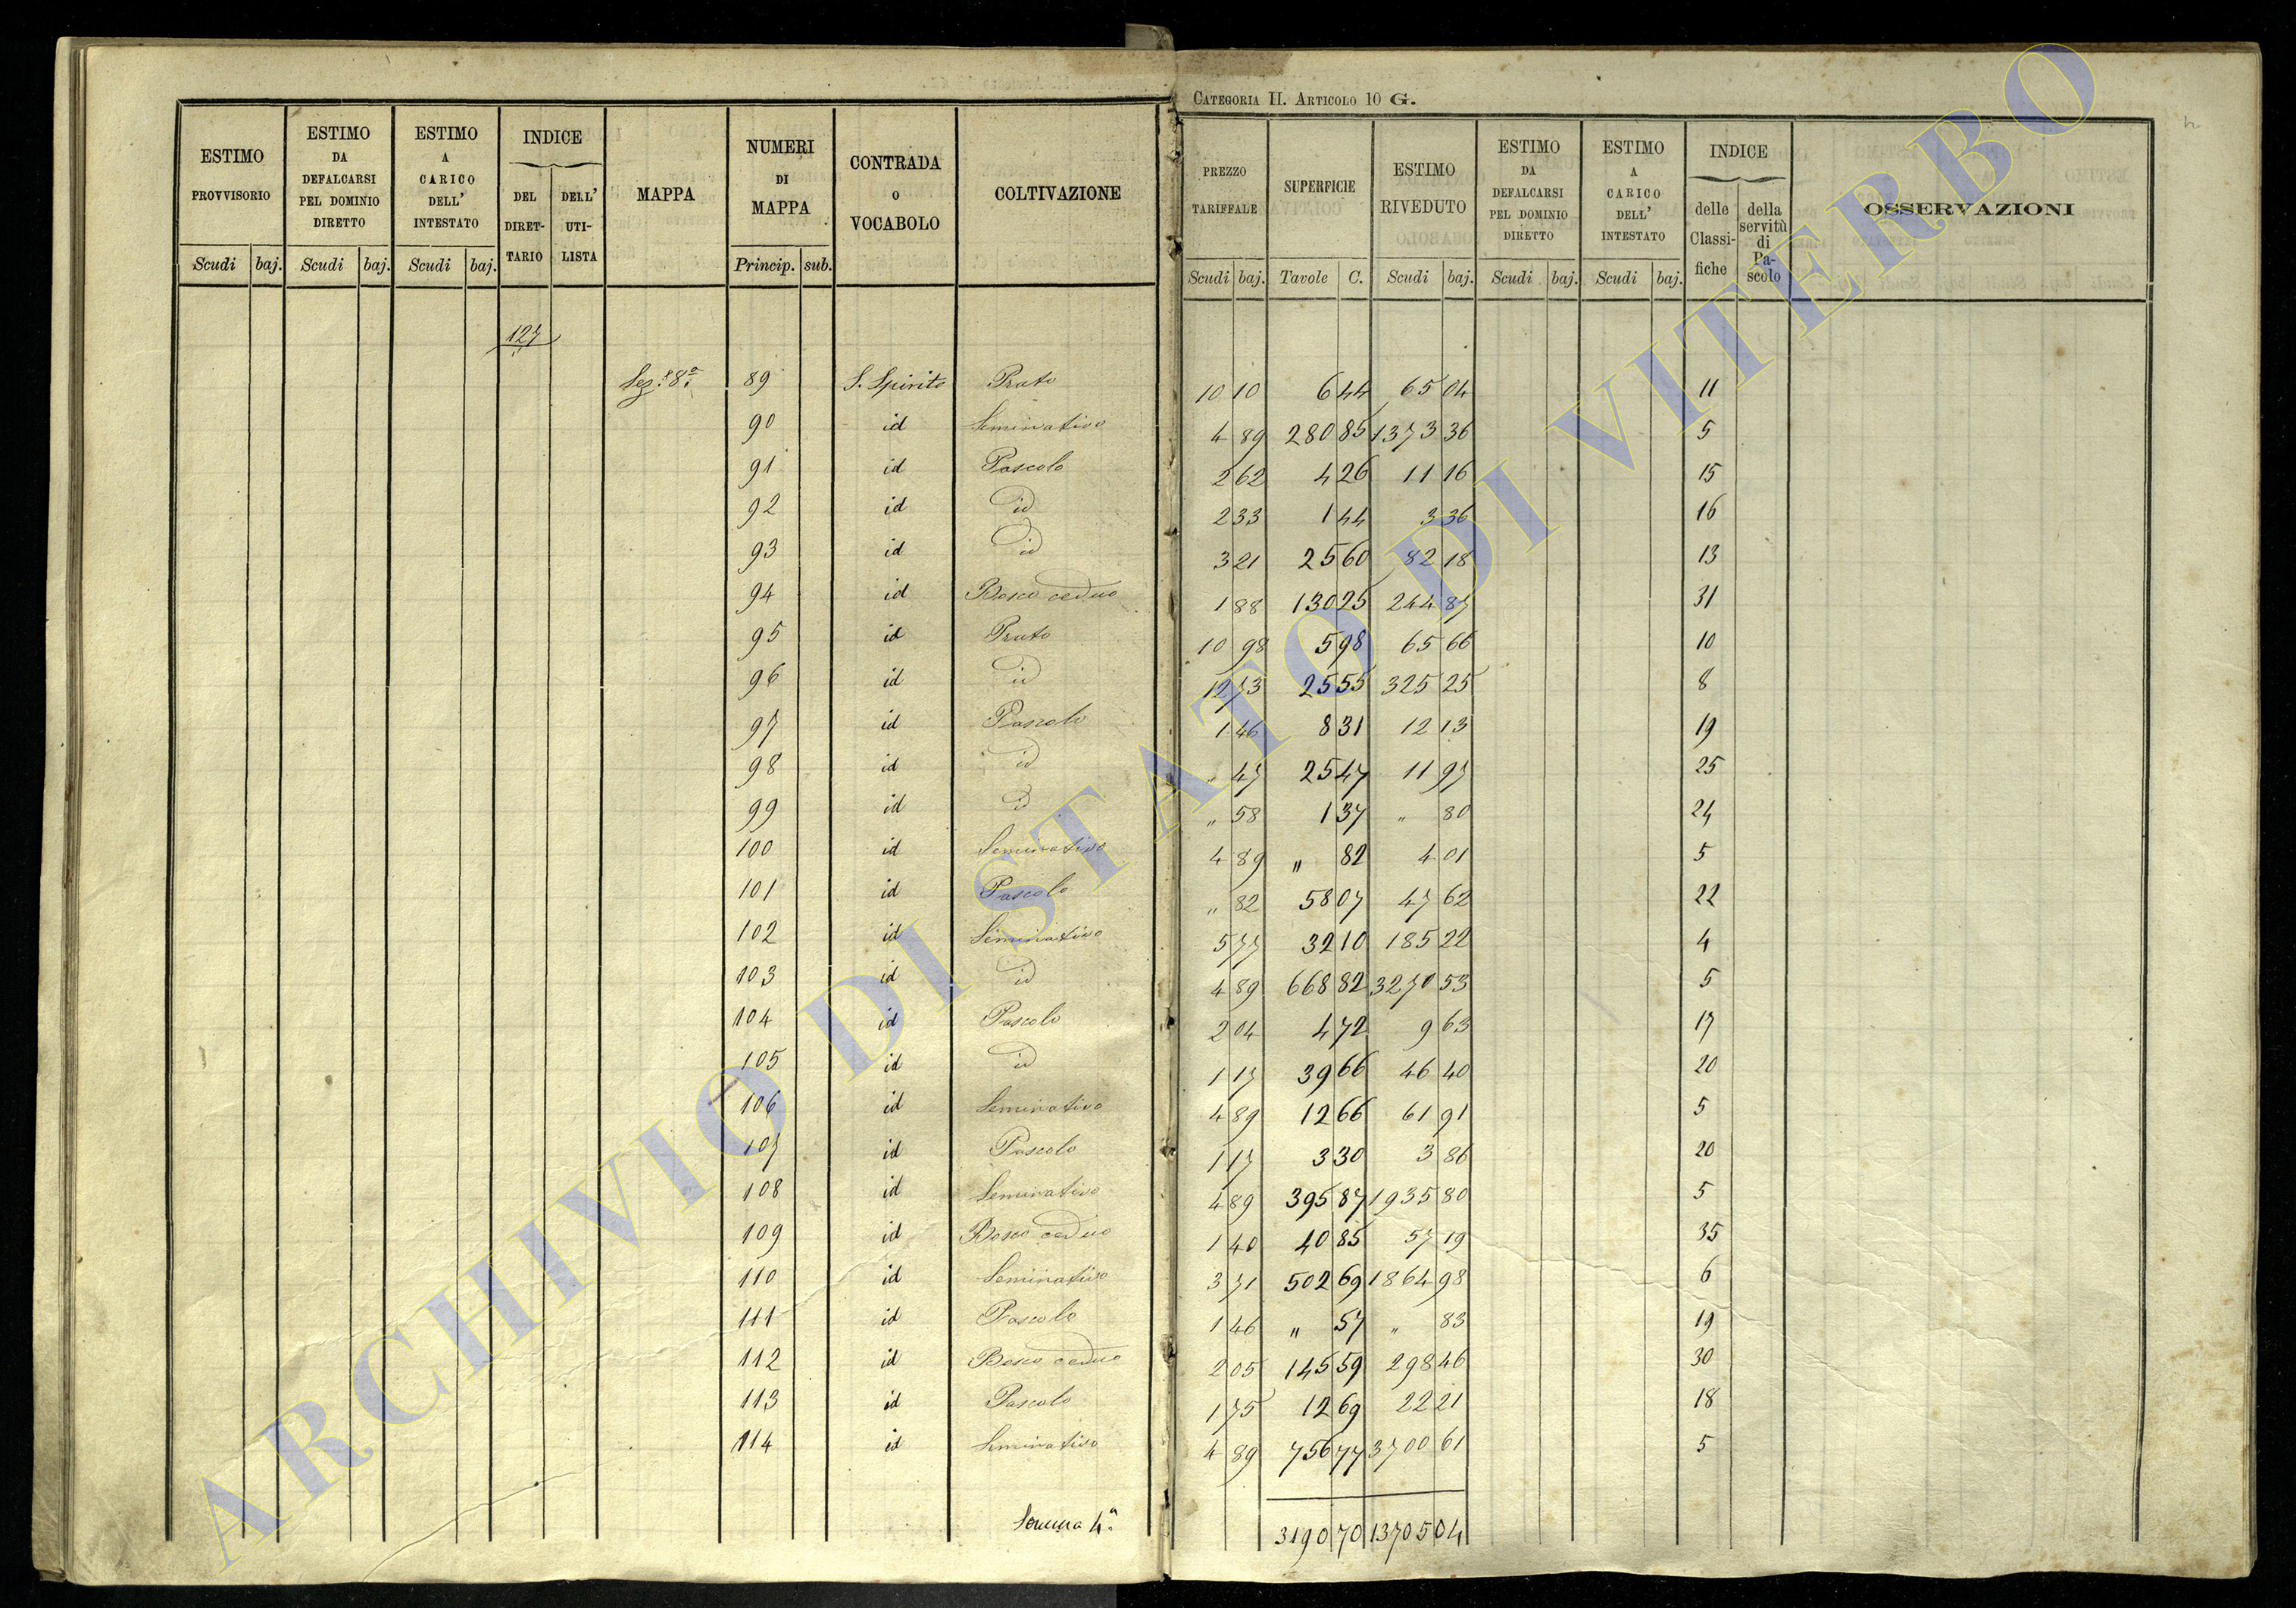 CATEGORIA II. ARTICOLO 10 G.
ESTIMO PROVVISORIO Scudi baj. | ESTIMO DA DEFALCARSI PEL DOMINIO DIRETTO Scudi baj. | ESTIMO A CARICO DELL' INTESTATO Scudi baj. | INDICE DEL DIRETTARIO DELL' UTILISTA | MAPPA | NUMERI DI MAPPA Princip. sub. | CONTRADA O VOCABOLO | COLTIVAZIONE | PREZZO TARIFFALE Scudi baj. | SUPERFICIE Tavole C. | ESTIMO RIVEDUTO Scudi baj. | ESTIMO DA DEFALCARSI PEL DOMINIO DIRETTO Scudi baj. | ESTIMO A CARICO DELL' INTESTATO Scudi baj. | INDICE delle Classifiche della servitù di Pascolo | OSSERVAZIONI
127
Sez.e 8a 89 S. Spirito Prato 10 10 6 44 65 04 11
90 id Seminativo 4 89 280 85 1373 36 5
91 id Pascolo 2 62 4 26 11 16 15
92 id id 2 33 1 44 3 36 16
93 id id 3 21 25 60 82 18 13
94 id Bosco ceduo 1 88 130 25 244 87 31
95 id Prato 10 98 5 98 65 66 10
96 id id 12 73 25 55 325 25 8
97 id Pascolo 1 46 8 31 12 13 19
98 id id " 47 25 47 11 97 25
99 id id " 58 1 37 " 80 24
100 id Seminativo 4 89 " 82 4 01 5
101 id Pascolo " 82 58 07 47 62 22
102 id Seminativo 5 77 32 10 185 22 4
103 id id 4 89 668 82 3270 53 5
104 id Pascolo 2 04 4 72 9 63 17
105 id id 1 17 39 66 46 40 20
106 id Seminativo 4 89 12 66 61 91 5
107 id Pascolo 1 17 3 30 3 86 20
108 id Seminativo 4 89 395 87 1935 80 5
109 id Bosco ceduo 1 40 40 85 57 19 35
110 id Seminativo 3 71 502 69 1864 98 6
111 id Pascolo 1 46 " 57 " 83 19
112 id Bosco ceduo 2 05 145 59 298 46 30
113 id Pascolo 1 75 12 69 22 21 18
114 id Seminativo 4 89 756 77 3700 61 5
Somma 4a 3190 70 13705 04
ARCHIVIO DI STATO DI VITERBO